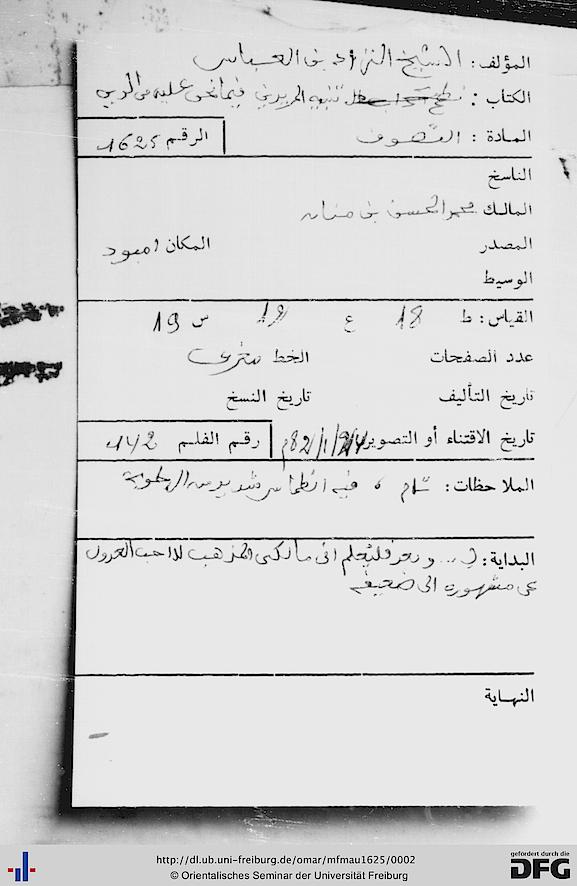 المؤلف: الشيخ التراد بن العباس
الكتاب: تنبيه المريدين فيما نحن عليه من الدين
المادة: التصوف الرقم 1625
الناسخ
المالك محمد الحسن بن
المصدر المكان
الوسيط
القياس: ط 18 ع 12 س 19
عدد الصفحات الخط مغربي
تاريخ التأليف تاريخ النسخ
تاريخ الاقتناء أو التصوير رقم الفلم 442
الملاحظات: تام، فيه انطماس شديد من الرطوبة
البداية: ... وبعد فليعلم أني مالكي المذهب لا أحب العدول
عن مشهوره إلى ضعيفه
النهاية
http://dl.ub.uni-freiburg.de/omar/mfmau1625/0002
© Orientalisches Seminar der Universität Freiburg
gefördert durch die
DFG